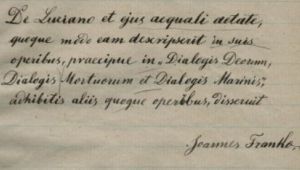 De Luciano et ejus aequali aetate,
quoque modo eam descripserit in suis
operibus, praecipue in „Dialogis Deorum,
Dialogis Mortuorum et Dialogis Marinis,"
adhibitis aliis quoque operibus, disseruit
Joannes Franko.